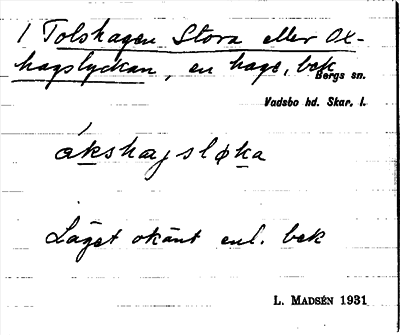 1 Tolshagen Stora eller Ox-
hagslyckan, en hage, bek
Bergs sn.
Vadsbo hd. Skar. l.
åkshagsløka
Läget okänt enl. bek
L. MADSÉN 1931